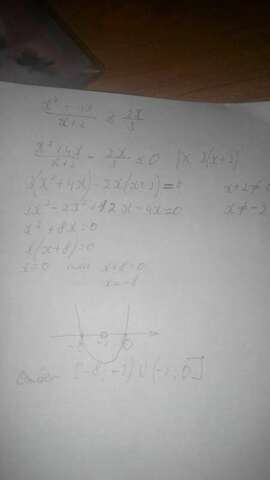 x² + 4x / x+2 ≤ 2x / 3
x² + 4x / x+2 - 2x / 3 ≤ 0 | × 3(x+2)
3(x²+4x) - 2x(x+2) = 0 x+2 ≠ 0
3x² - 2x² + 12x - 4x = 0 x ≠ -2
x² + 8x = 0
x(x+8) = 0
x = 0 или x+8 = 0
x = -8
-8 -2 0
Ответ [-8; -2) ∪ (-2; 0]